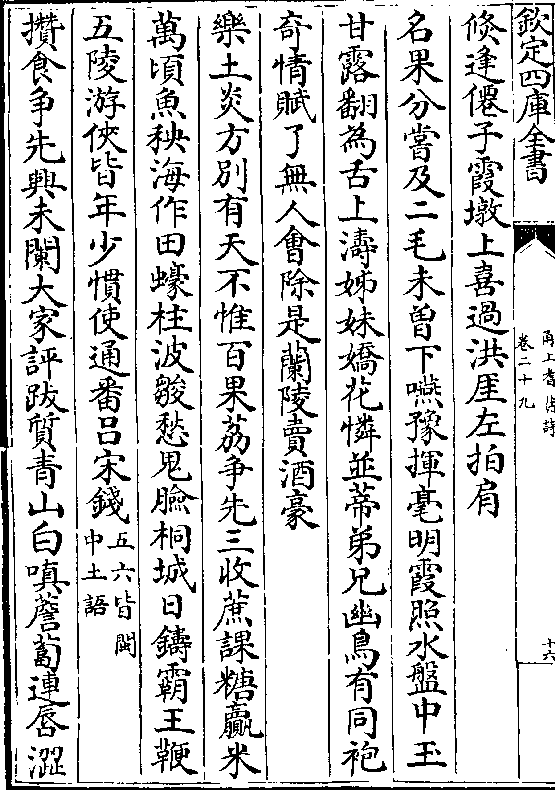 欽定四庫全書
卷二十九
十六
倐逢僊子霞墩上喜過洪厓左拍肩
名果分嘗及二毛未曽下嚥豫揮毫明霞照水盤中玉
甘露翻為舌上濤姊妹嬌花憐並蒂弟兄幽鳥有同袍
奇情賦了無人會除是蘭陵賣酒豪
樂土炎方别有天不惟百果荔争先三收蔗課糖贏米
萬頃魚秧海作田蠔柱波皴愁鬼臉桐城日鑄霸王鞭
五陵游俠皆年少慣使通番吕宋錢五六皆閩
中土語
攢食争先興未闌大家評跋質青山白嗔薝蔔連唇澀